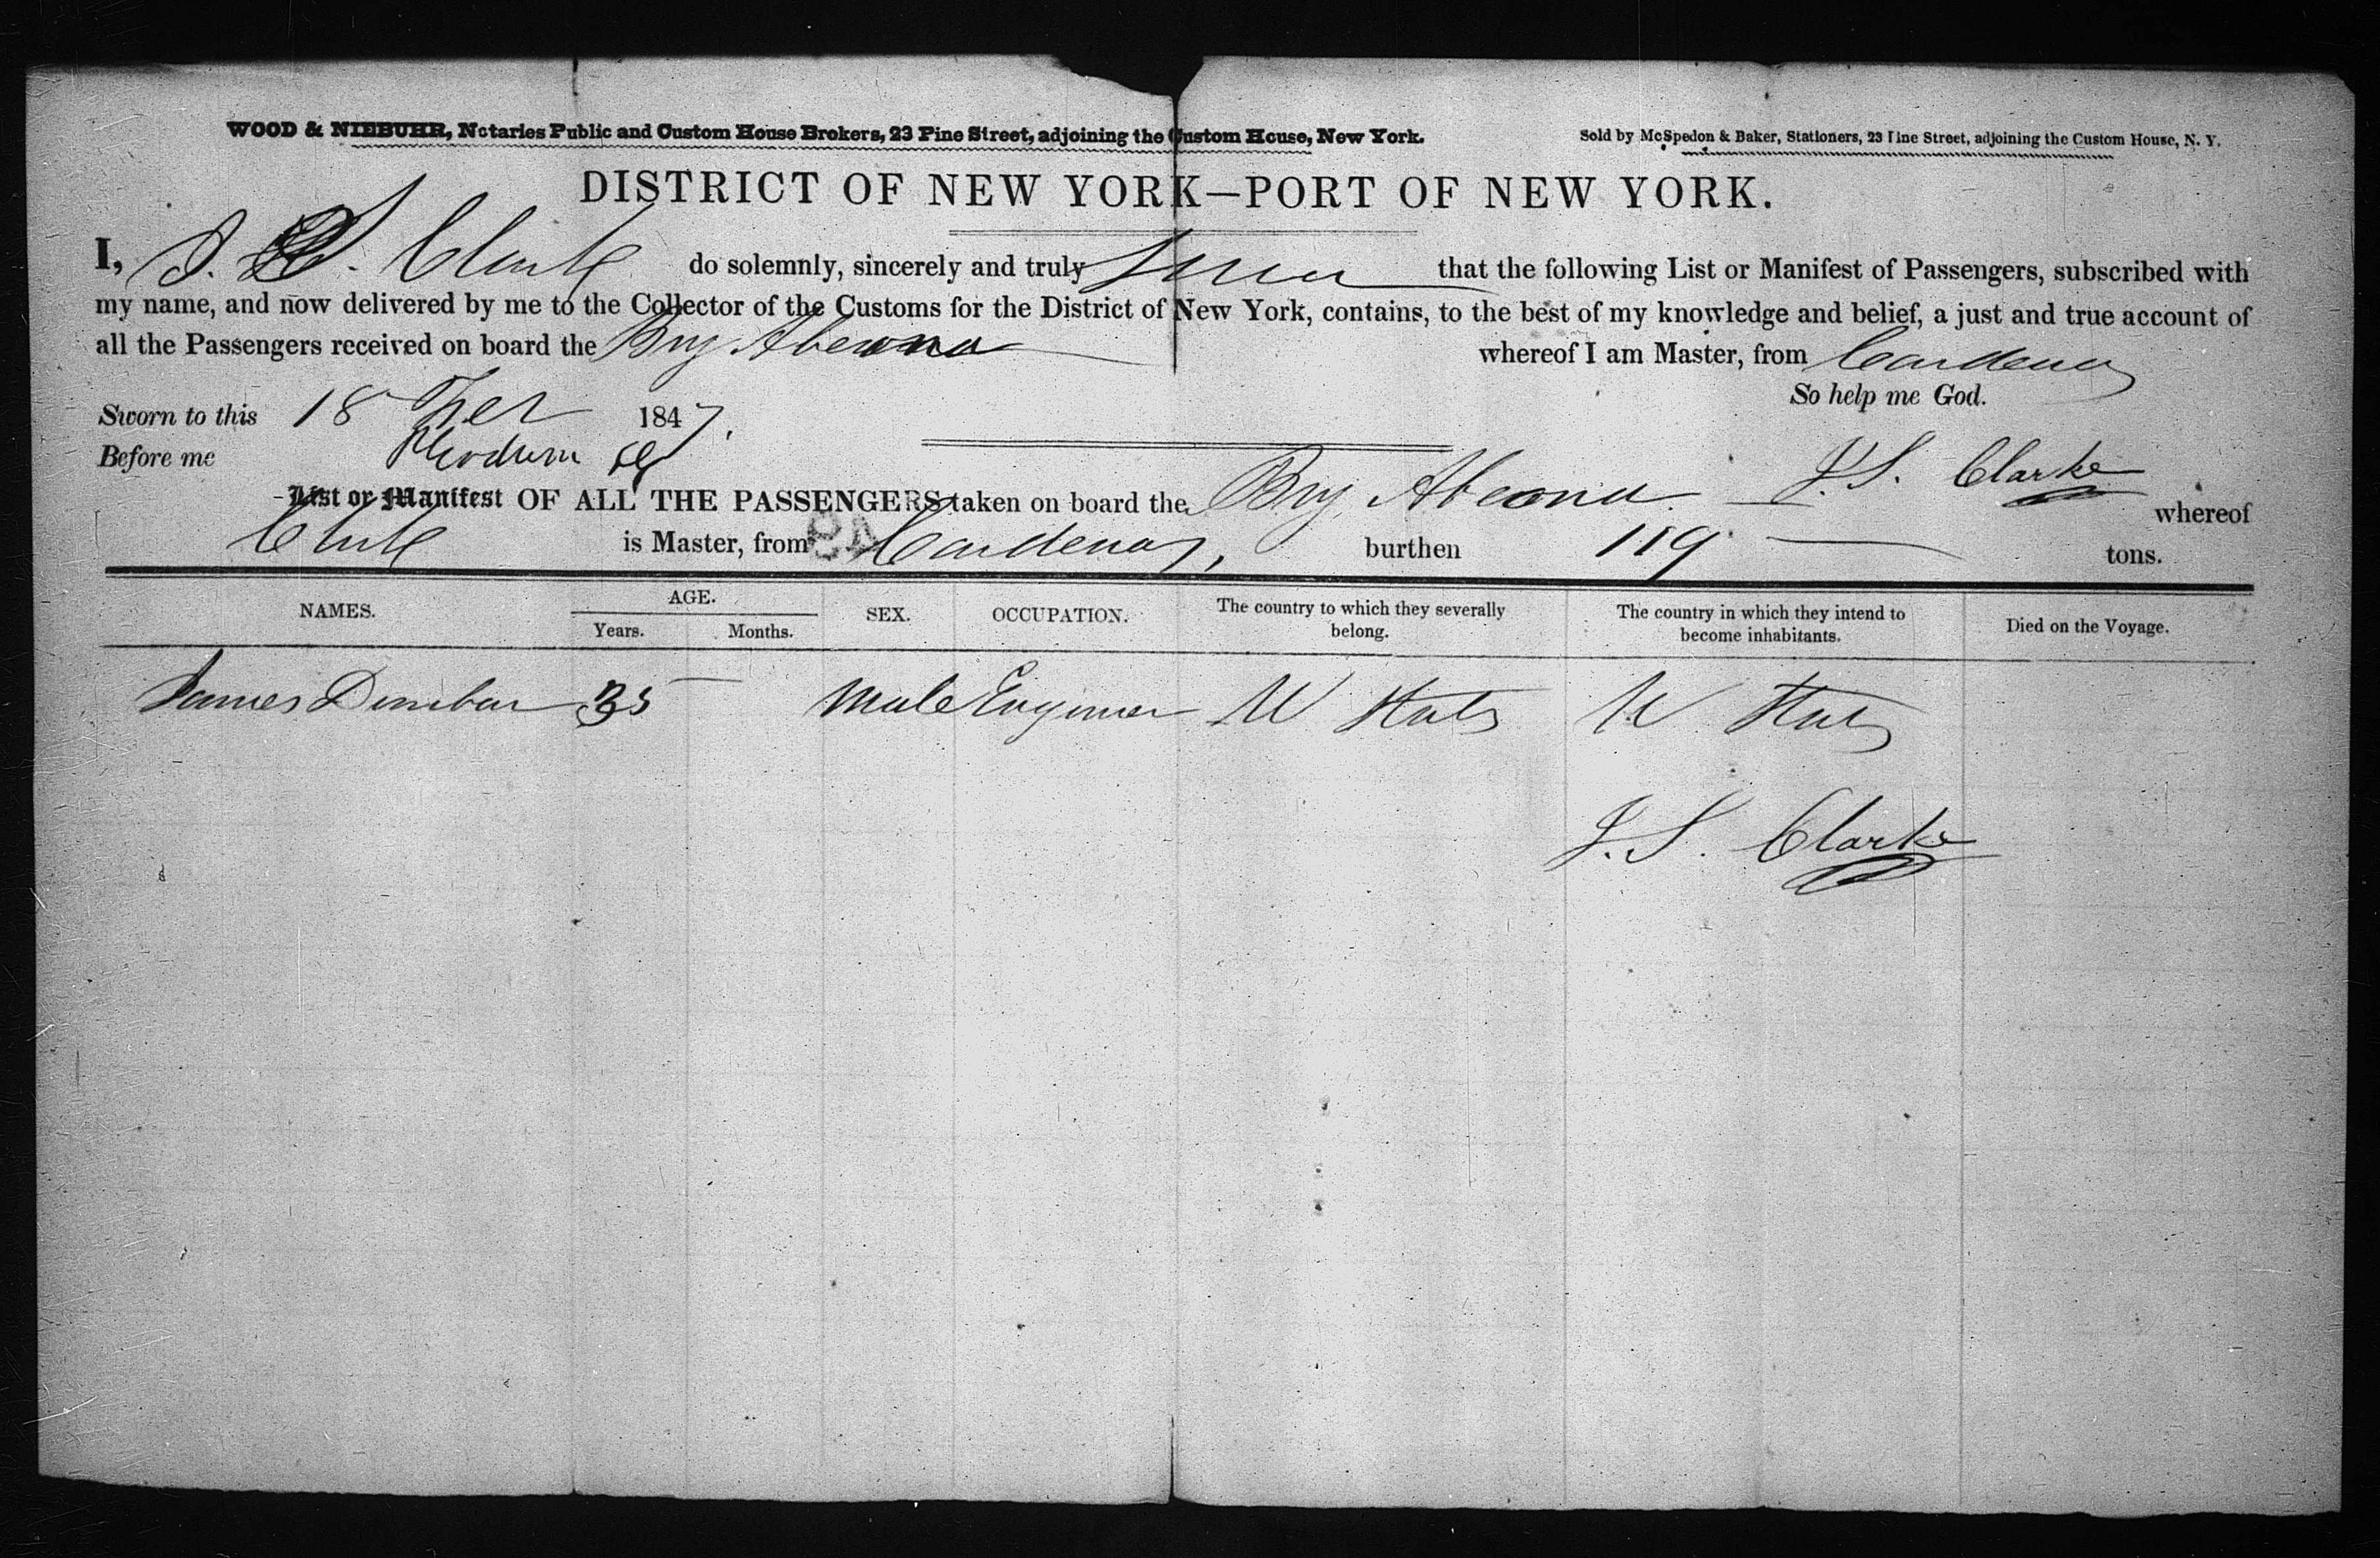 WOOD & NIEBUHR, Notaries Public and Custom House Brokers, 23 Pine Street, adjoining the Custom House, New York.
Sold by McSpedon & Baker, Stationers, 23 Pine Street, adjoining the Custom House, N. Y.
DISTRICT OF NEW YORK—PORT OF NEW YORK.
I, J. S. Clark do solemnly, sincerely and truly swear that the following List or Manifest of Passengers, subscribed with
my name, and now delivered by me to the Collector of the Customs for the District of New York, contains, to the best of my knowledge and belief, a just and true account of
all the Passengers received on board the Brig Abeona whereof I am Master, from Cardenas
So help me God.
Sworn to this 18 1847.
Before me
J. S. Clarke
List or Manifest OF ALL THE PASSENGERS taken on board the Brig Abeona whereof
Clark is Master, from Cardenas, burthen 119 tons.
NAMES. AGE. SEX. OCCUPATION. The country to which they severally belong. The country in which they intend to become inhabitants. Died on the Voyage.
Years. Months.
James Dunbar 35 Male Engineer U States U States
J. S. Clarke